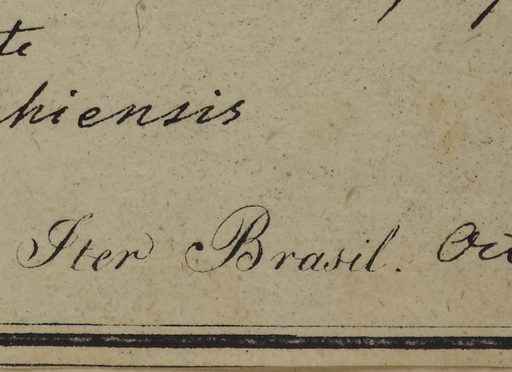 te
hiensis
Iter Brasil. Oct